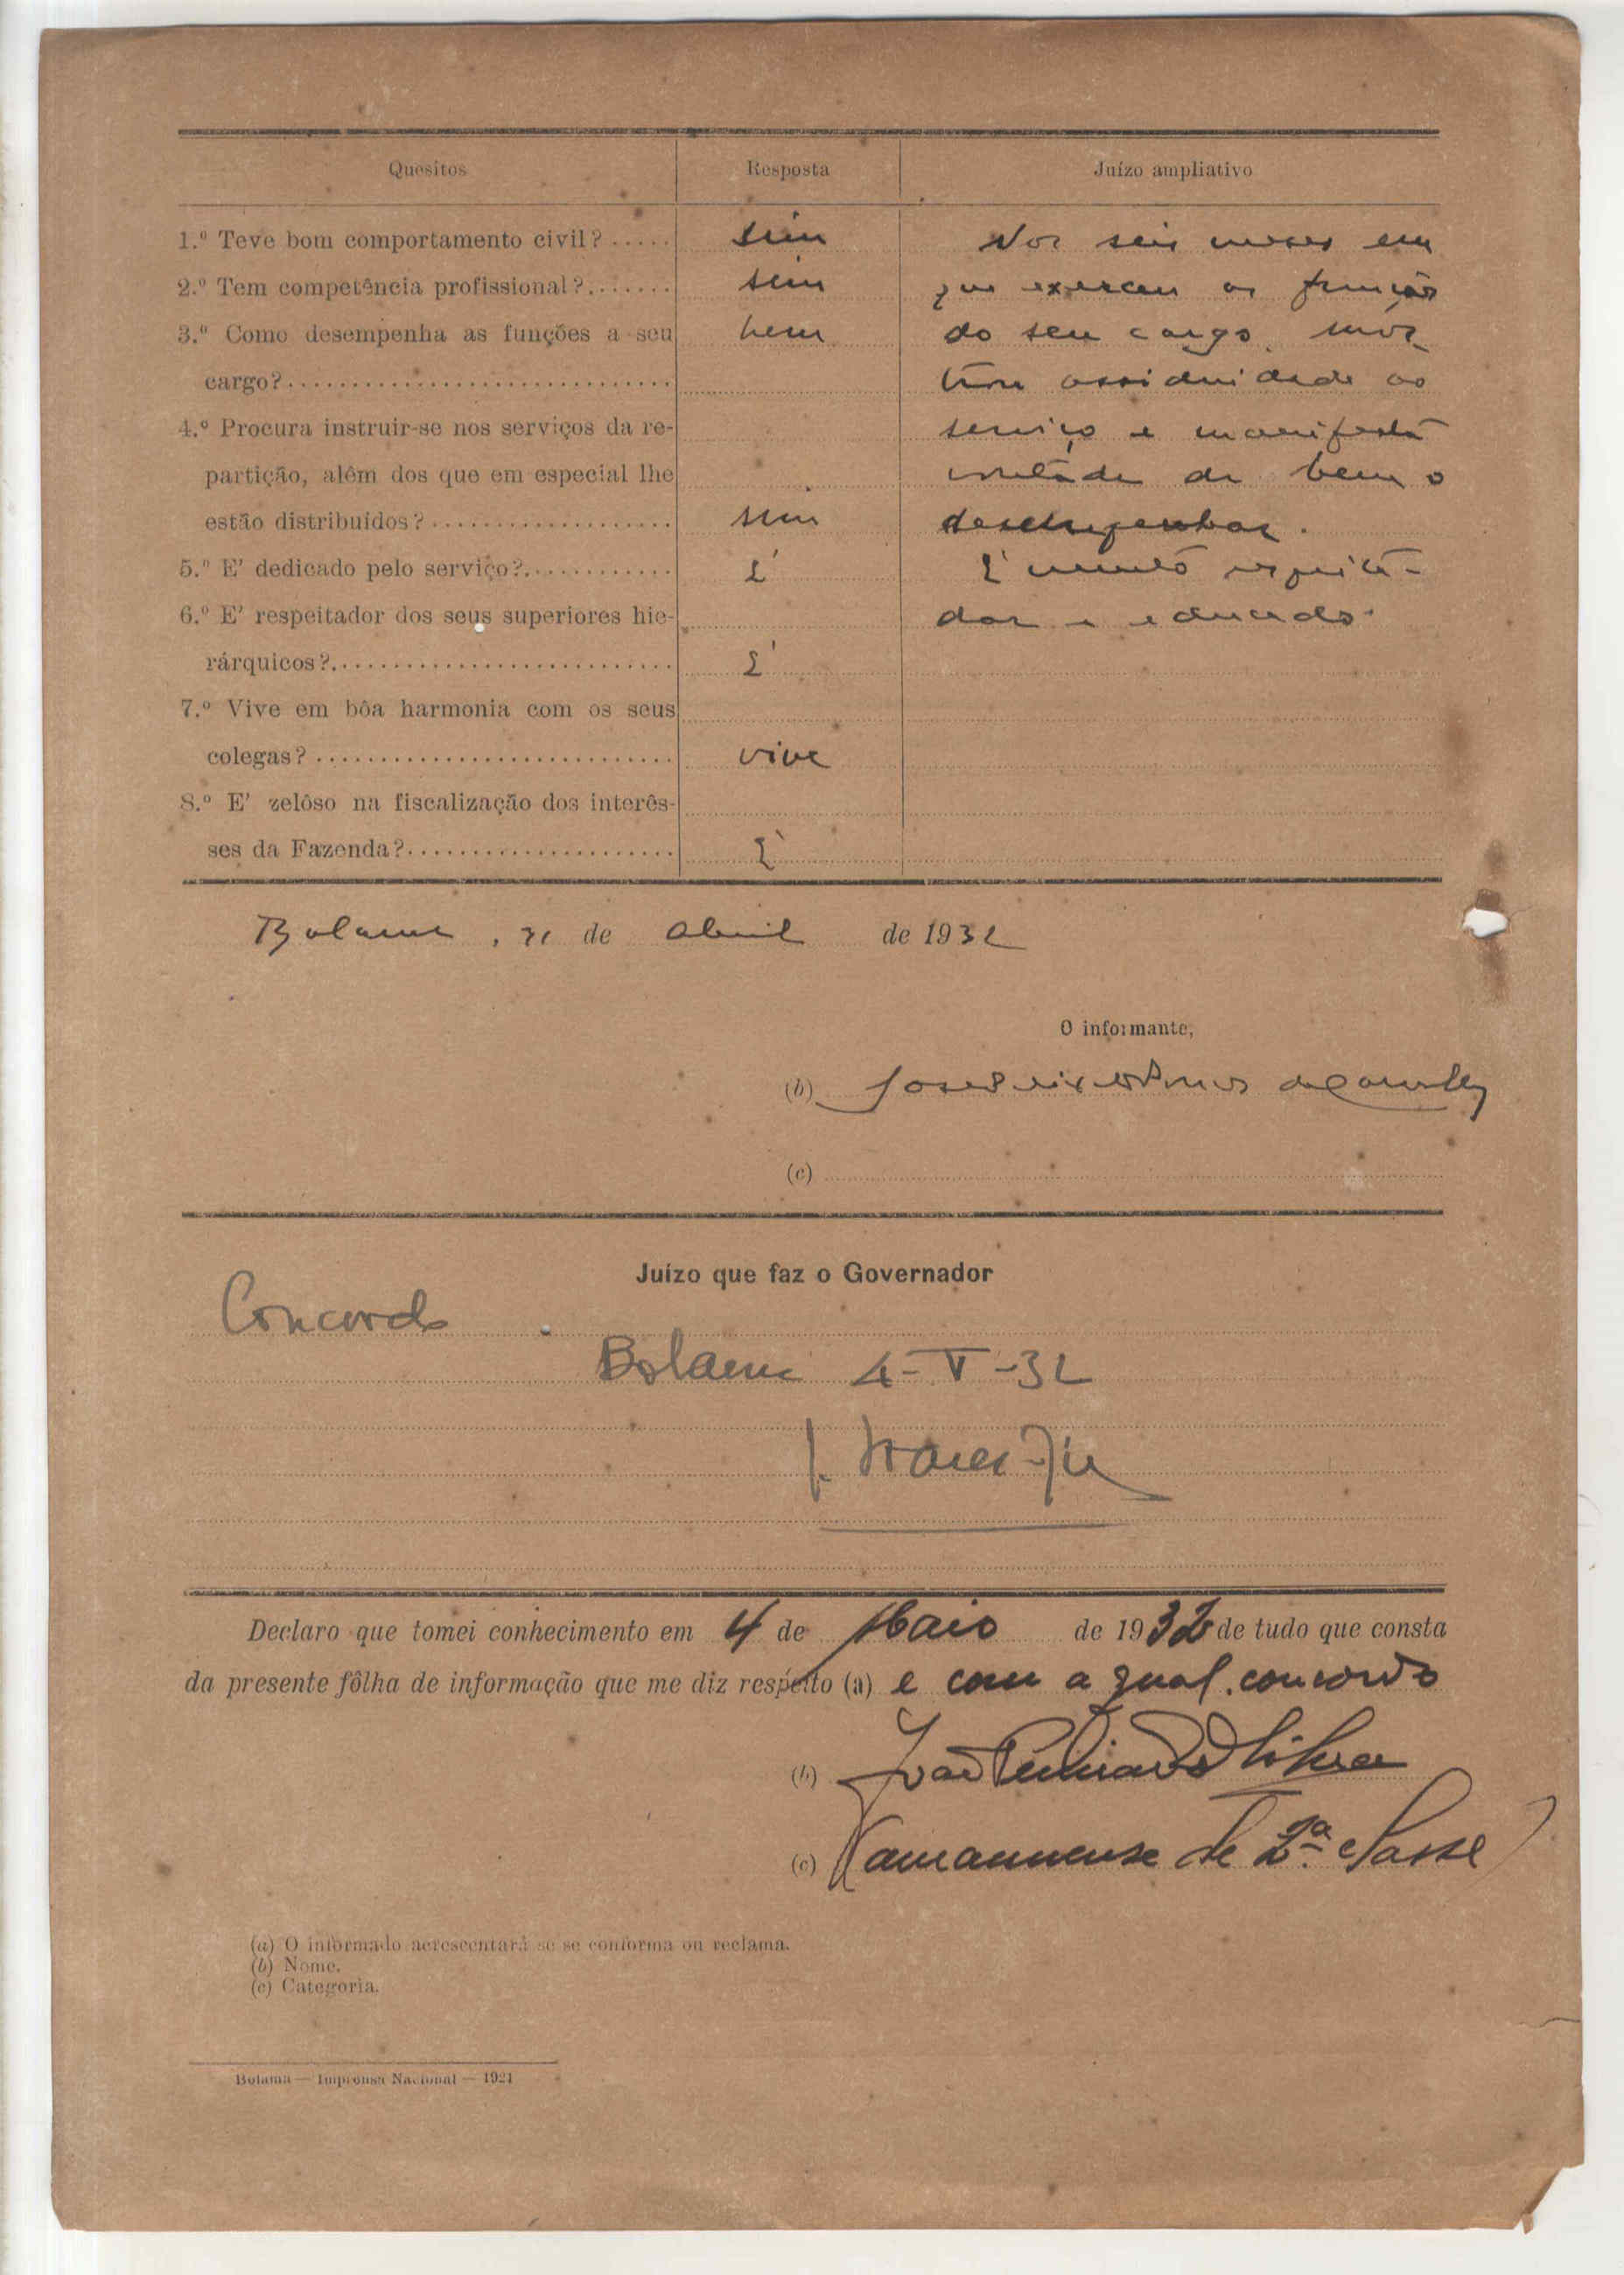 Quesitos Resposta Juízo ampliativo
1.º Teve bom comportamento civil? ..... sim Nos seis meses em
2.º Tem competência profissional? ....... sim que exerceu as funções
3.º Como desempenha as funções a seu bem do seu cargo, mos
cargo? ............................. trou assiduidade ao
4.º Procura instruir-se nos serviços da re- serviço e manifesta
partição, além dos que em especial lhe vontade de bem o
estão distribuídos? .................. sim desempenhar.
5.º E' dedicado pelo serviço? ............ É É muito respeita-
6.º E' respeitador dos seus superiores hie- dor e educado.
rárquicos? ......................... É
7.º Vive em bôa harmonia com os seus
colegas? ........................... vive
8.º E' zelôso na fiscalização dos interês-
ses da Fazenda? .................... É
Bolama, de Abril de 1932
O informante,
(b) José
(c)
Juízo que faz o Governador
Concordo
Bolama 4-V-32
Declaro que tomei conhecimento em 4 de Maio de 1932 de tudo que consta
da presente fôlha de informação que me diz respeito (a) e com a qual concordo
(b) João
(c) (amanuense de 2.ª classe)
(a) O informado acrescentará se se conforma ou reclama.
(b) Nome.
(c) Categoria.
Bolama — Imprensa Nacional — 1921